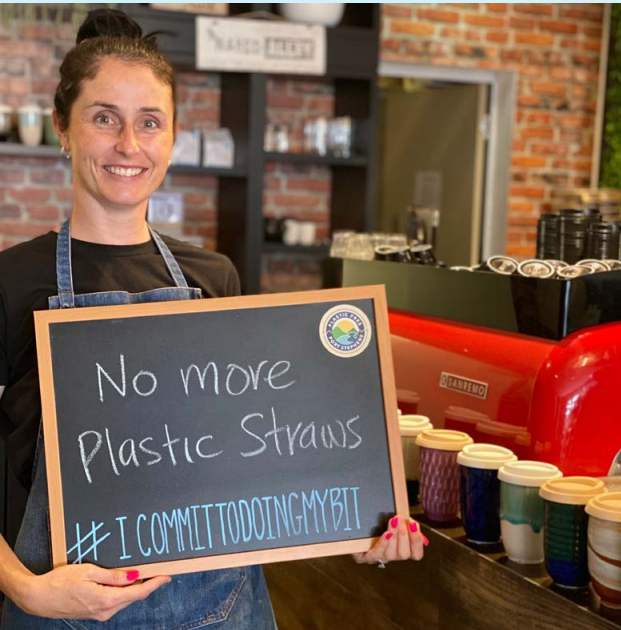 NAKED BERRY
PLASTIC FREE
PORT STEPHENS
No more
Plastic Straws
#ICOMMITTODOINGMYBIT
SANREMO